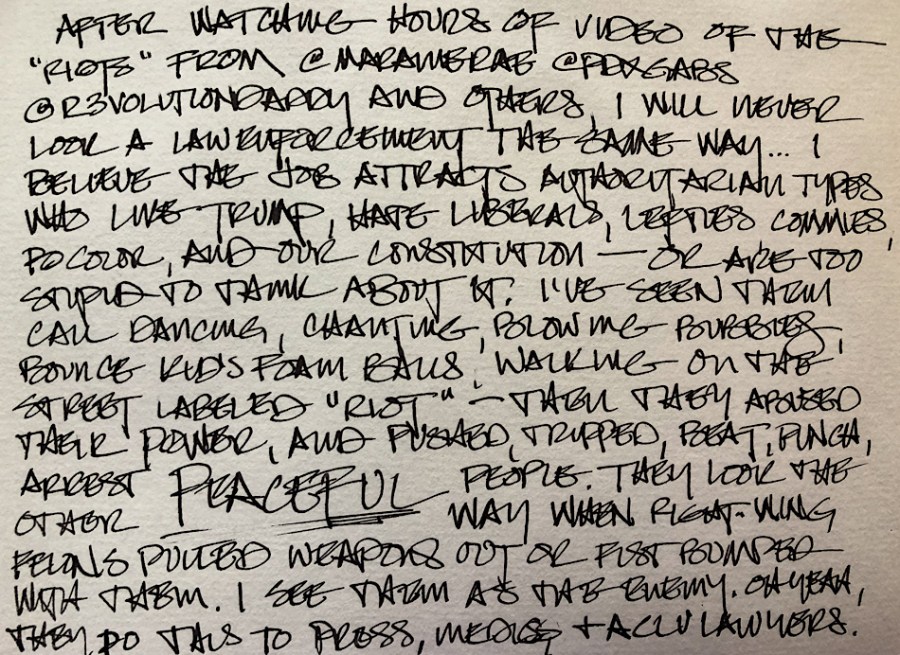 AFTER WATCHING HOURS OF VIDEO OF THE
"RIOTS" FROM @MARANIERAE @PDXGABS
@R3VOLUTIONDADDY AND OTHERS, I WILL NEVER
LOOK A LAW ENFORCEMENT THE SAME WAY... I
BELIEVE THE JOB ATTRACTS AUTHORITARIAN TYPES
WHO LIKE TRUMP, HATE LIBERALS, LEFTIES COMMIES,
POCOLOR, AND OUR CONSTITUTION — OR ARE TOO
STUPID TO THINK ABOUT IT. I'VE SEEN THEM
CALL DANCING, CHANTING, BLOWING BUBBLES,
BOUNCE KID'S FOAM BALLS, WALKING ON THE
STREET LABELED "RIOT" — THEN THEY ABUSED
THEIR POWER, AND PUSHED, TRIPPED, BEAT, PUNCH,
ARREST PEACEFUL PEOPLE. THEY LOOK THE
OTHER WAY WHEN RIGHT-WING
FELONS PULLED WEAPONS OUT OR FIST BUMPED
WITH THEM. I SEE THEM AS THE ENEMY. OH YEAH,
THEY DO THIS TO PRESS, MEDICS, + ACLU LAWYERS.